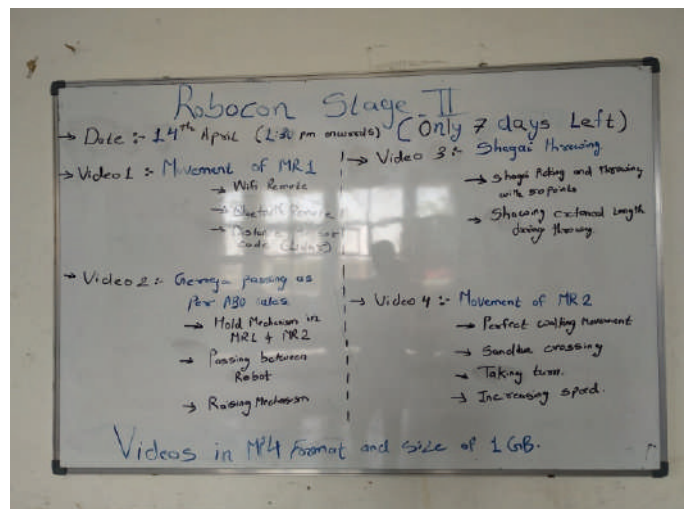 Robocon Stage-II
(Only 7 days Left)
→ Date :- 14th April (1:30 pm onwards)
→ Video 1 :- Movement of MR1
→ Wifi Remote
→ Bluetooth Remote
→
code
→ Video 2 :- Gerege passing as
Per ABU rules
→ Hold Mechanism in
MR1 & MR2
→ Passing between
Robot
→ Raising Mechanism
→ Video 3 :- Shagai throwing
→ Shagai Picking and Throwing
with 50 points
→ Showing extened length
during throwing.
→ Video 4 :- Movement of MR2
→ Perfect walking Movement
→ Sanddue crossing
→ Taking turn.
→ Increasing speed.
Videos in MP4 Format and size of 1 GB.